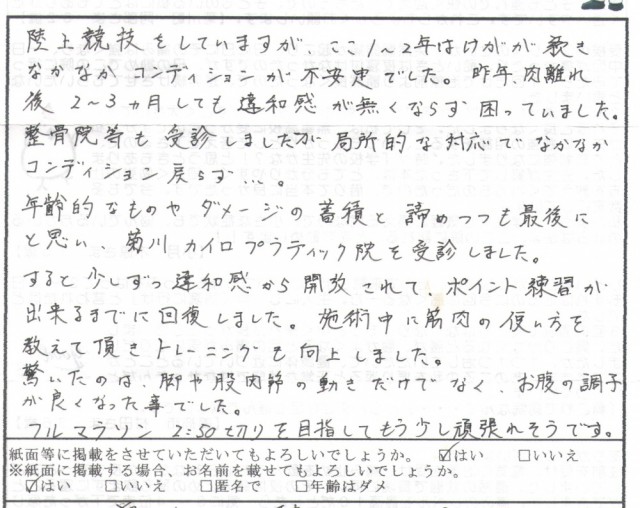 陸上競技をしていますが、ここ1～2年はけがが続き
なかなかコンディションが不安定でした。昨年、肉離れ
後 2～3ヵ月しても違和感が無くならず困っていました。
整骨院等も受診しましたが、局所的な対応でなかなか
コンディション戻らず…。
年齢的なものやダメージの蓄積と諦めつつも最後に
と思い、菊川カイロプラティック院を受診しました。
すると少しずつ違和感から開放されて、ポイント練習が
出来るまでに回復しました。施術中に筋肉の使い方を
教えて頂きトレーニングも向上しました。
驚いたのは、脚や股関節の動きだけでなく、お腹の調子
が良くなった事でした。
フルマラソン 2:50切りを目指してもう少し頑張れそうです。
紙面等に掲載をさせていただいてもよろしいでしょうか。 ☑はい □いいえ
※紙面に掲載する場合、お名前を載せてもよろしいでしょうか。
☑はい □いいえ □匿名で □年齢はダメ